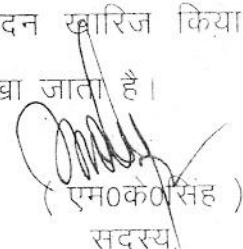 दन खारिज किया
जाता है।
( एम0के0सिंह )
सदस्य